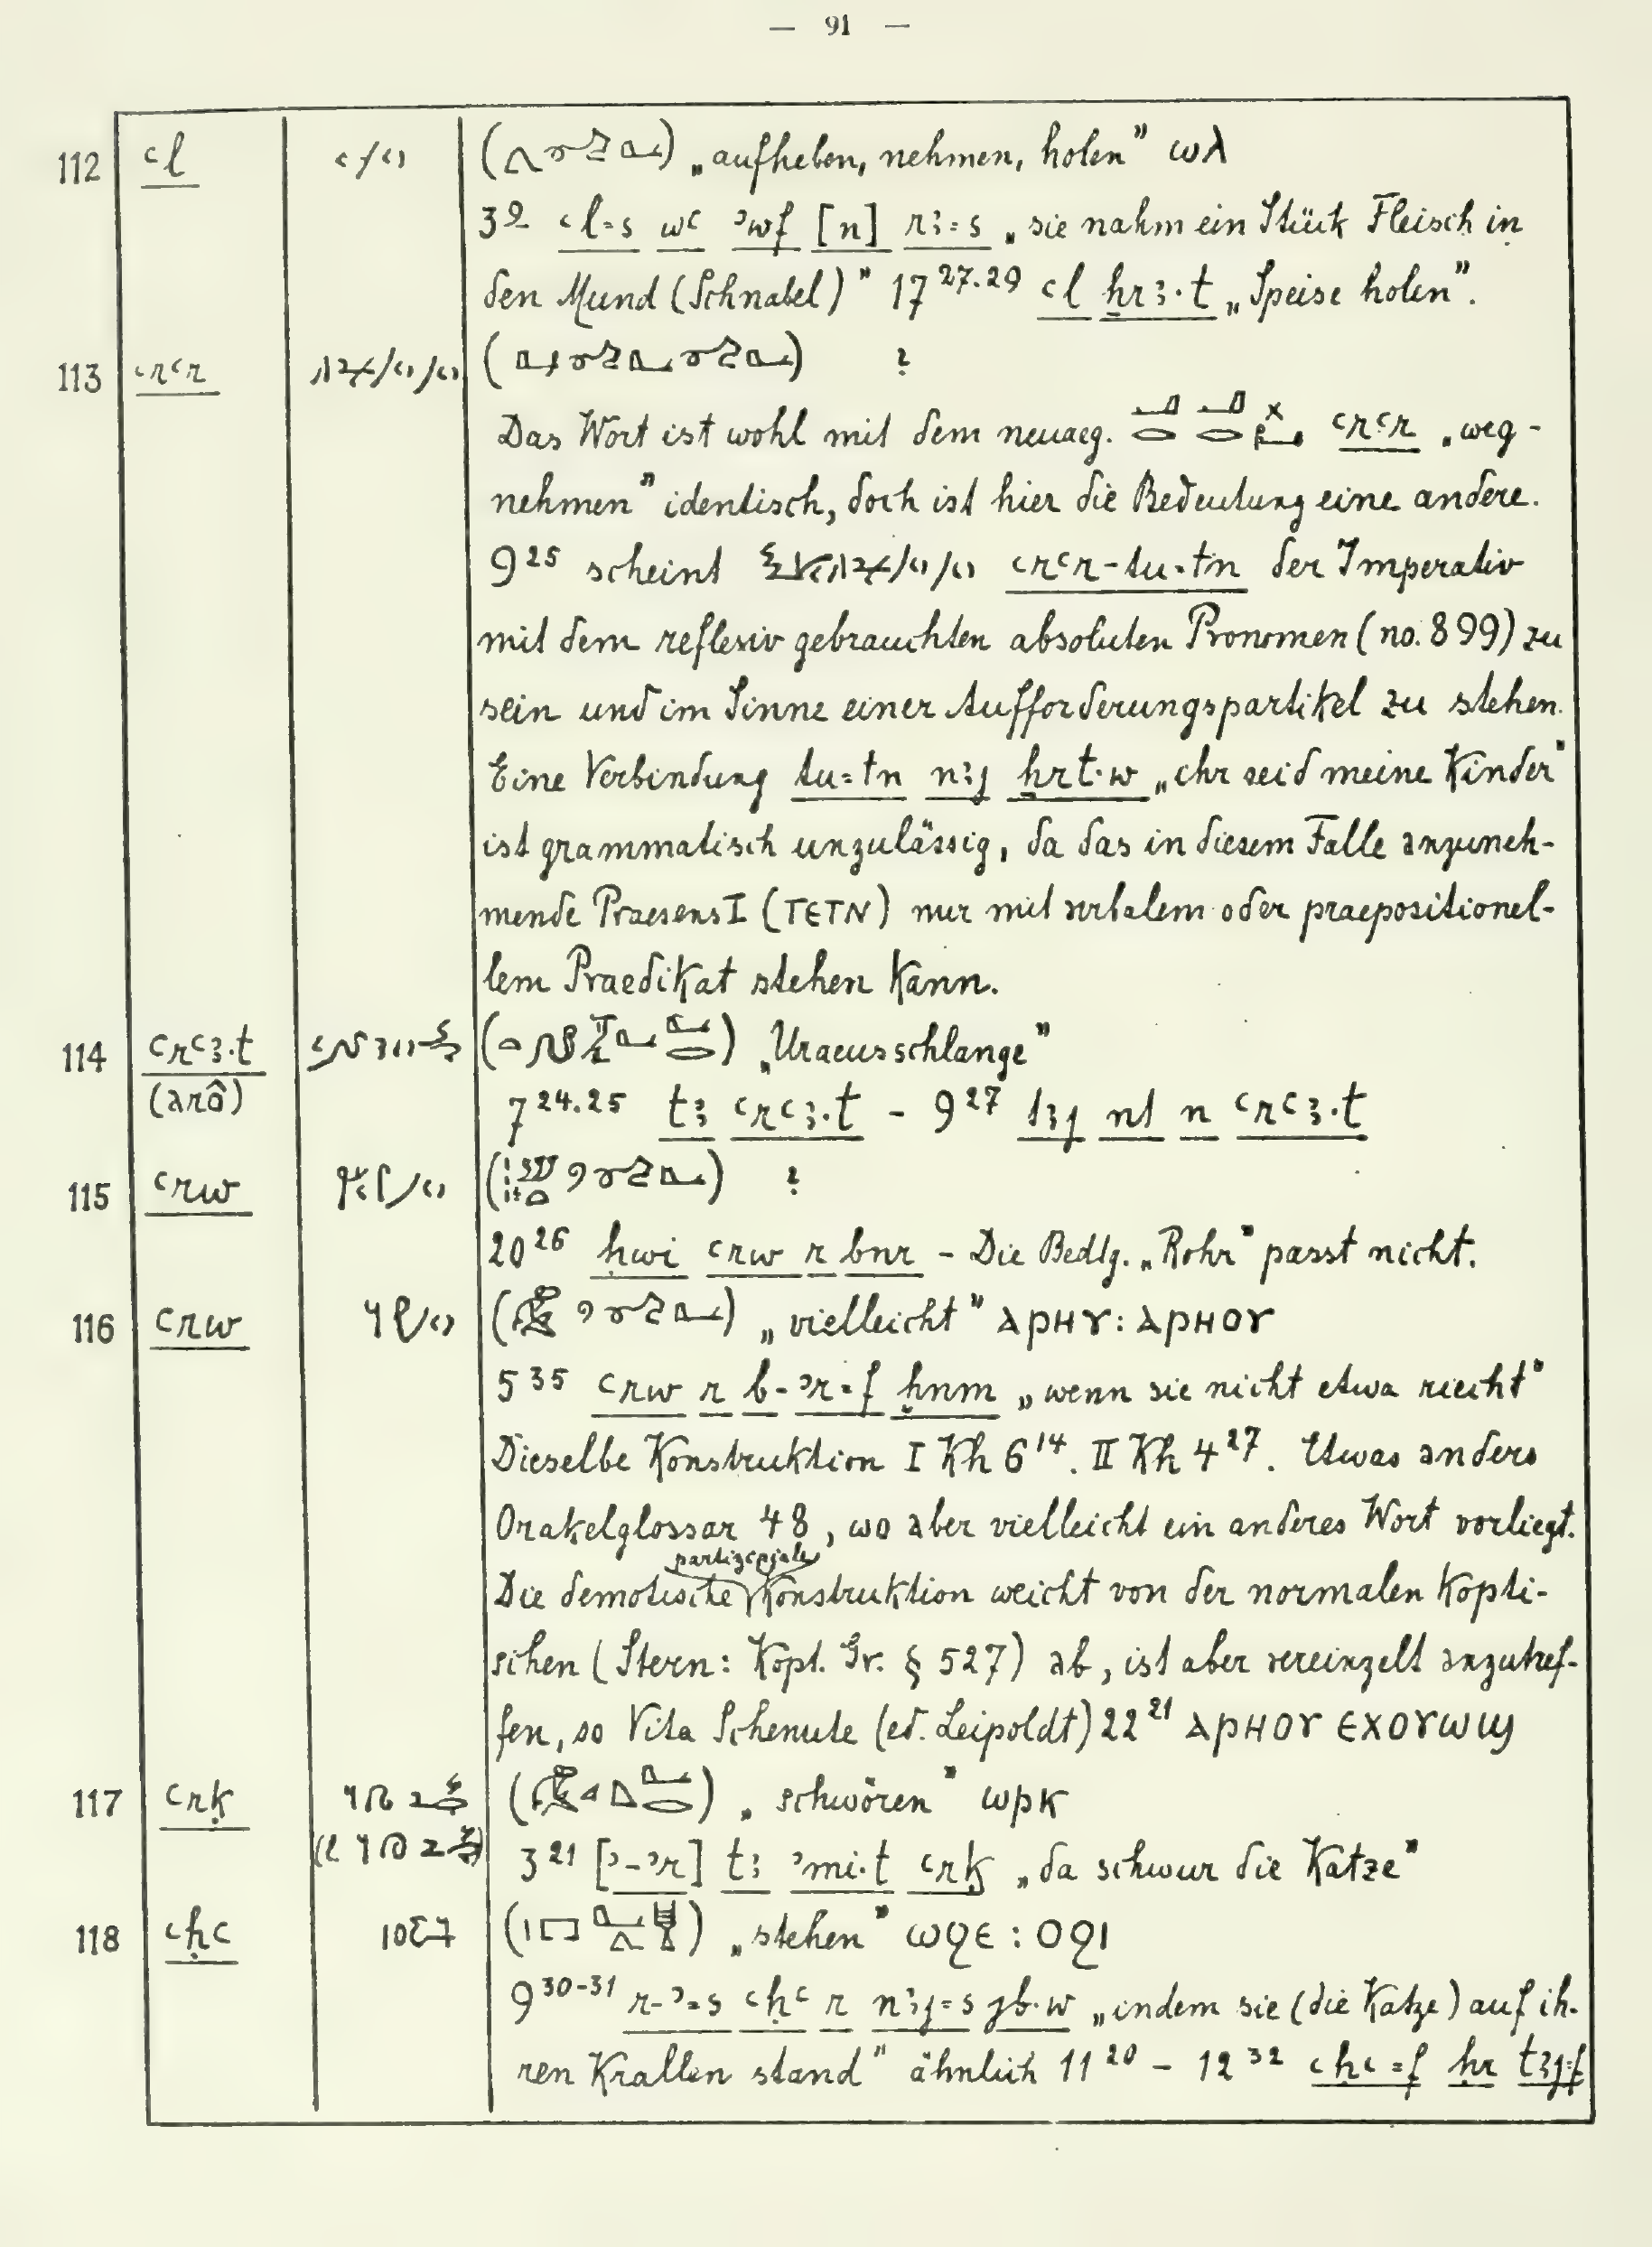 — 91 —
112 ꜥl „aufheben, nehmen, holen” ⲱⲗ
3⁹ ꜥl=s wꜥ ꜣwf [n] rꜣ=s „sie nahm ein Stück Fleisch in
den Mund (Schnabel)” 17²⁷·²⁹ ꜥl ẖrꜣ·t „Speise holen”.
113 ꜥrꜥr ?
Das Wort ist wohl mit dem neuaeg. ꜥrꜥr „weg-
nehmen” identisch, doch ist hier die Bedeutung eine andere.
9²⁵ scheint ꜥrꜥr-tu=tn der Imperativ
mit dem reflexiv gebrauchten absoluten Pronomen (no. 899) zu
sein und im Sinne einer Aufforderungspartikel zu stehen.
Eine Verbindung tu=tn nꜣj ẖrt·w „ihr seid meine Kinder”
ist grammatisch unzulässig, da das in diesem Falle anzuneh-
mende Praesens I (ⲧⲉⲧⲛ) nur mit verbalem oder praepositionel-
lem Praedikat stehen kann.
114 ꜥrꜥꜣ·t „Uraeusschlange”
(arô) 7²⁴·²⁵ tꜣ ꜥrꜥꜣ·t - 9²⁷ tꜣj nt n ꜥrꜥꜣ·t
115 ꜥrw ?
20²⁶ ḥwi ꜥrw r bnr - Die Bedtg. „Rohr” passt nicht.
116 ꜥrw „vielleicht” ⲁⲣⲏⲩ : ⲁⲣⲏⲟⲩ
5³⁵ ꜥrw r b-ꜣr=f ẖnm „wenn sie nicht etwa riecht”
Dieselbe Konstruktion I Kh 6¹⁴. II Kh 4²⁷. Etwas anders
Orakelglossar 48, wo aber vielleicht ein anderes Wort vorliegt.
partizipiale
Die demotische Konstruktion weicht von der normalen kopti-
schen (Stern: Kopt. Gr. § 527) ab, ist aber vereinzelt anzutref-
fen, so Vita Schenute (ed. Leipoldt) 22²¹ ⲁⲣⲏⲟⲩ ⲉⲭⲟⲩⲱϣ
117 ꜥrḳ „schwören” ⲱⲣⲕ
3²¹ [ꜣ-ꜣr] tꜣ ꜣmi·t ꜥrḳ „da schwur die Katze”
118 ꜥḥꜥ „stehen” ⲱϩⲉ : ⲟϩⲓ
9³⁰⁻³¹ r-ꜣ=s ꜥḥꜥ r nꜣj=s jb·w „indem sie (die Katze) auf ih-
ren Krallen stand” ähnlich 11²⁰ - 12³² ꜥḥꜥ=f ḥr tꜣj=f